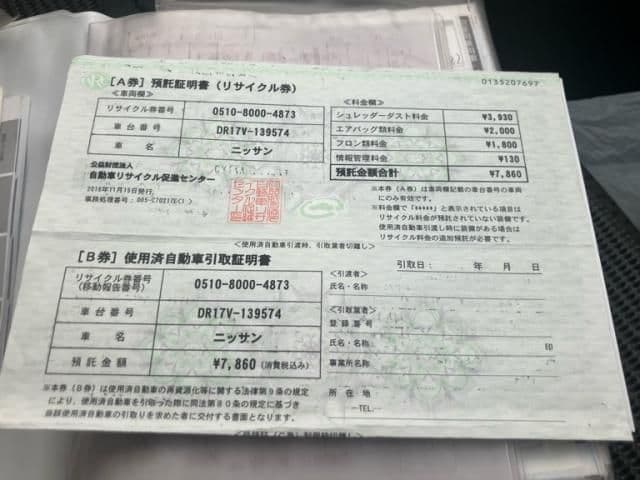 0135207697
[A券] 預託証明書(リサイクル券)
≪車両欄≫
リサイクル券番号 0510-8000-4873
車台番号 DR17V-139574
車名 ニッサン
公益財団法人
自動車リサイクル促進センター
2016年11月15日発行,
≪料金欄≫
シュレッダーダスト料金 ¥3,930
エアバッグ類料金 ¥2,000
フロン類料金 ¥1,800
情報管理料金 ¥130
預託金額合計 ¥7,860
※本券(A券)は車両欄記載の車台番号の車両
にのみ有効です。
※料金欄で「*****」と表示されている項目は
リサイクル料金が預託されていない装備です。
使用済自動車引渡し時に装備がある場合は
リサイクル料金の追加預託が必要です。
<使用済自動車引渡時、引取業者切離し>
[B券] 使用済自動車引取証明書
リサイクル券番号
(移動報告番号) 0510-8000-4873
車台番号 DR17V-139574
車名 ニッサン
預託金額 ¥7,860 (消費税込み)
※本券(B券)は使用済自動車の再資源化等に関する法律第9条の規定
により、使用済自動車を引取った際に同法第80条の規定に基づき
当該使用済自動車の引取りを求めた者に交付する書面となります。
引取日: 年 月 日
<引渡者>
氏名・名称
<引取業者>
登録番号
氏名・名称 印
事業所名称
所在地
TEL